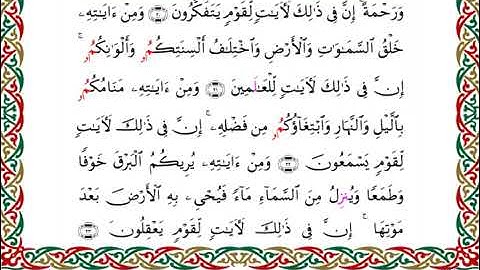 وَرَحْمَةً ۚ إِنَّ فِى ذَٰلِكَ لَأَيَٰتٍ لِّقَوْمٍ يَتَفَكَّرُونَ ٢٠ وَمِنْ ءَايَٰتِهِۦ
خَلْقُ ٱلسَّمَٰوَٰتِ وَٱلْأَرْضِ وَٱخْتِلَٰفُ أَلْسِنَتِكُمُۥ وَأَلْوَٰنِكُمُۥ ۚ
إِنَّ فِى ذَٰلِكَ لَأَيَٰتٍ لِّلْعَٰلَمِينَ ٢١ وَمِنْ ءَايَٰتِهِۦ مَنَامُكُمُۥ
بِٱلَّيْلِ وَٱلنَّهَارِ وَٱبْتِغَآؤُكُمُۥ مِن فَضْلِهِۦ ۚ إِنَّ فِى ذَٰلِكَ لَأَيَٰتٍ
لِّقَوْمٍ يَسْمَعُونَ ٢٢ وَمِنْ ءَايَٰتِهِۦ يُرِيكُمُ ٱلْبَرْقَ خَوْفًا
وَطَمَعًا وَيُنزِلُ مِنَ ٱلسَّمَآءِ مَآءً فَيُحْىِۦ بِهِ ٱلْأَرْضَ بَعْدَ
مَوْتِهَا ۚ إِنَّ فِى ذَٰلِكَ لَأَيَٰتٍ لِّقَوْمٍ يَعْقِلُونَ ٢٣